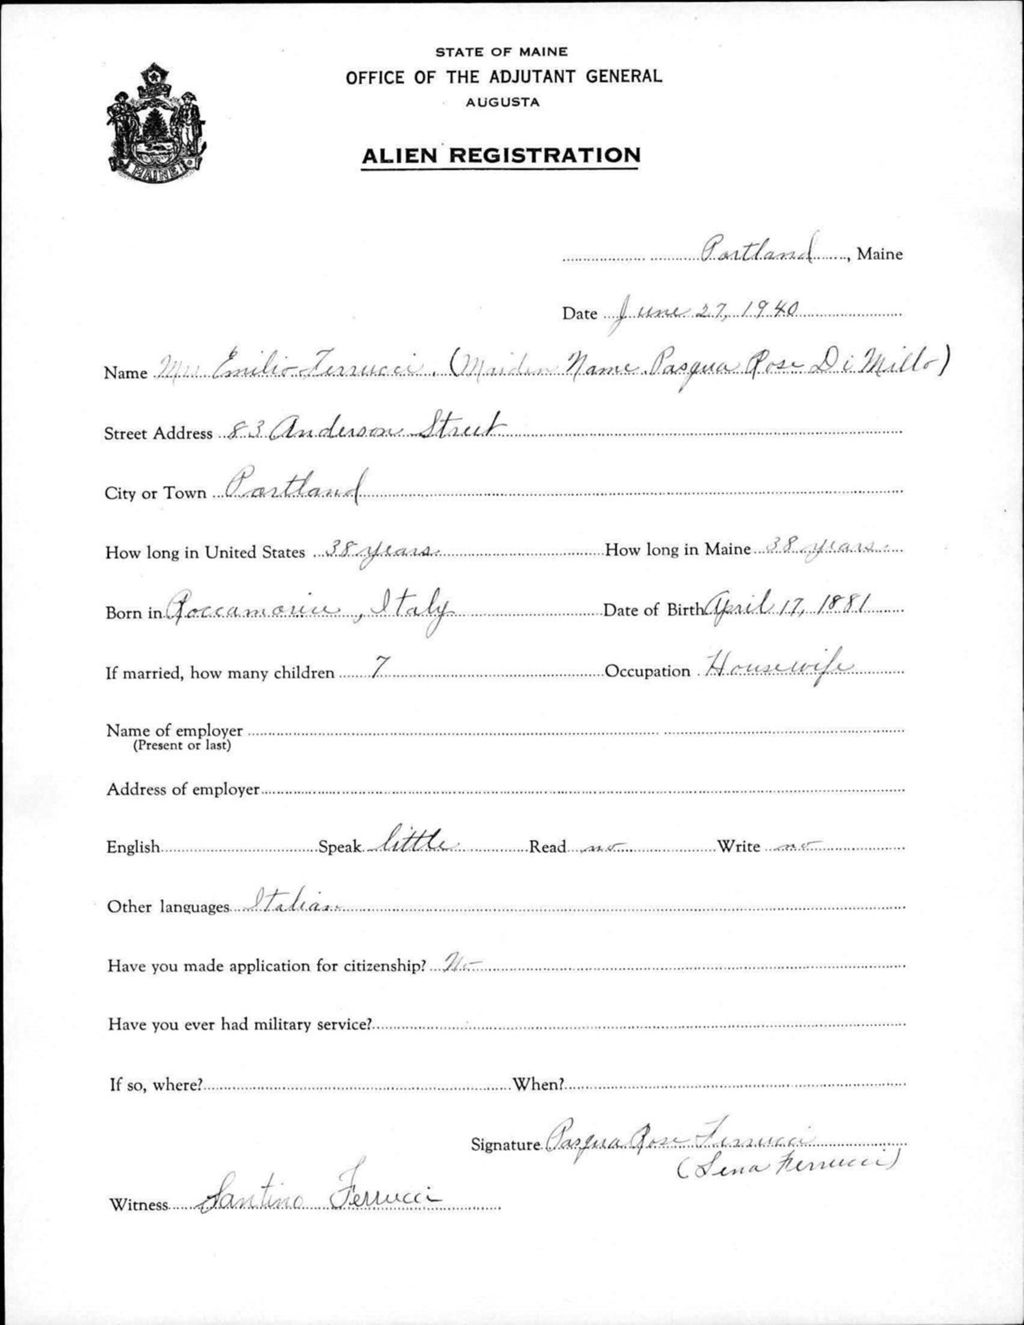 STATE OF MAINE
OFFICE OF THE ADJUTANT GENERAL
AUGUSTA
ALIEN REGISTRATION
MAINE
Portland, Maine
Date June 27, 1940
Name Mrs Emilio Ferrucci, (Maiden Name Pasqua Rose Di Millo)
Street Address 83 Anderson Street
City or Town Portland
How long in United States 38 years How long in Maine 38 years
Born in Roccamorice, Italy Date of Birth April 17, 1881
If married, how many children 7 Occupation Housewife
Name of employer
(Present or last)
Address of employer
English Speak little Read no Write no
Other languages Italian
Have you made application for citizenship? No
Have you ever had military service?
If so, where? When?
Signature Pasqua Rose Ferrucci
(Lena Ferrucci)
Witness Santino Ferrucci